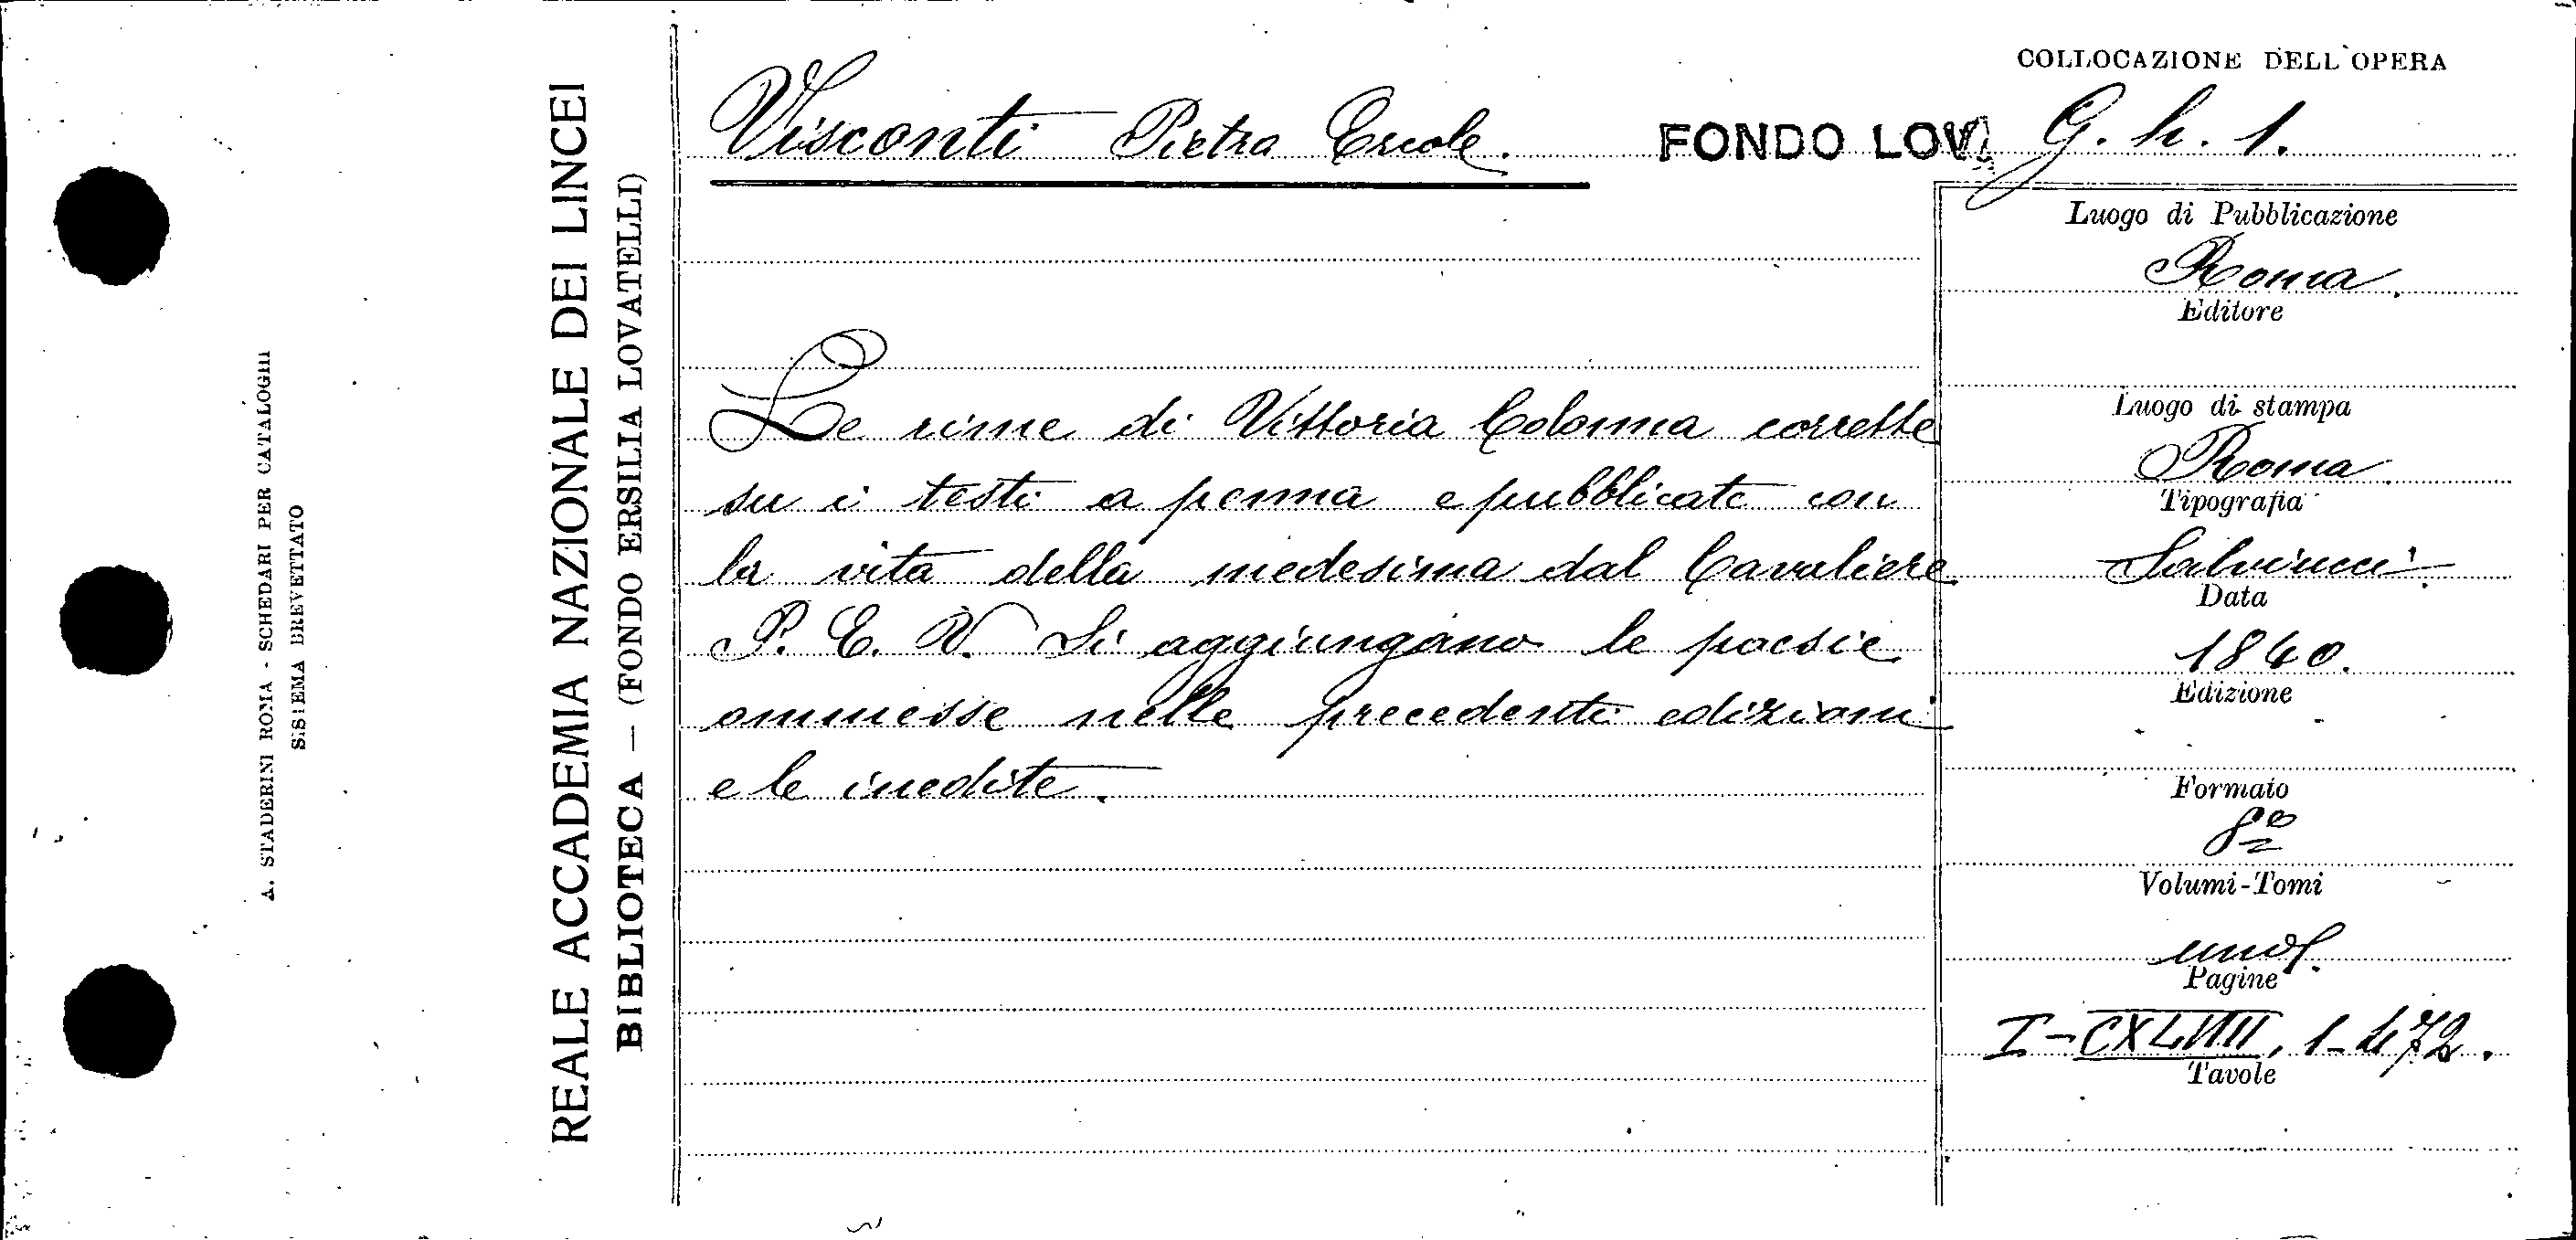 COLLOCAZIONE DELL'OPERA
Visconti Pietro Ercole. FONDO LOV. G. h. 1.
Luogo di Pubblicazione
Roma.
Editore
Luogo di stampa
Roma
Tipografia
Salviucci.
Data
1840.
Edizione
Formato
8º
Volumi-Tomi
uno.
Pagine
I-CXLVIII, 1-472.
Tavole
Le rime di Vittoria Colonna corrette
su i testi a penna e pubblicate con
la vita della medesima dal Cavaliere
P. E. V. Si aggiungono le poesie
ommesse nelle precedenti edizioni
e le inedite.
REALE ACCADEMIA NAZIONALE DEI LINCEI
BIBLIOTECA — (FONDO ERSILIA LOVATELLI)
A. STADERINI ROMA - SCHEDARI PER CATALOGHI
SISTEMA BREVETTATO